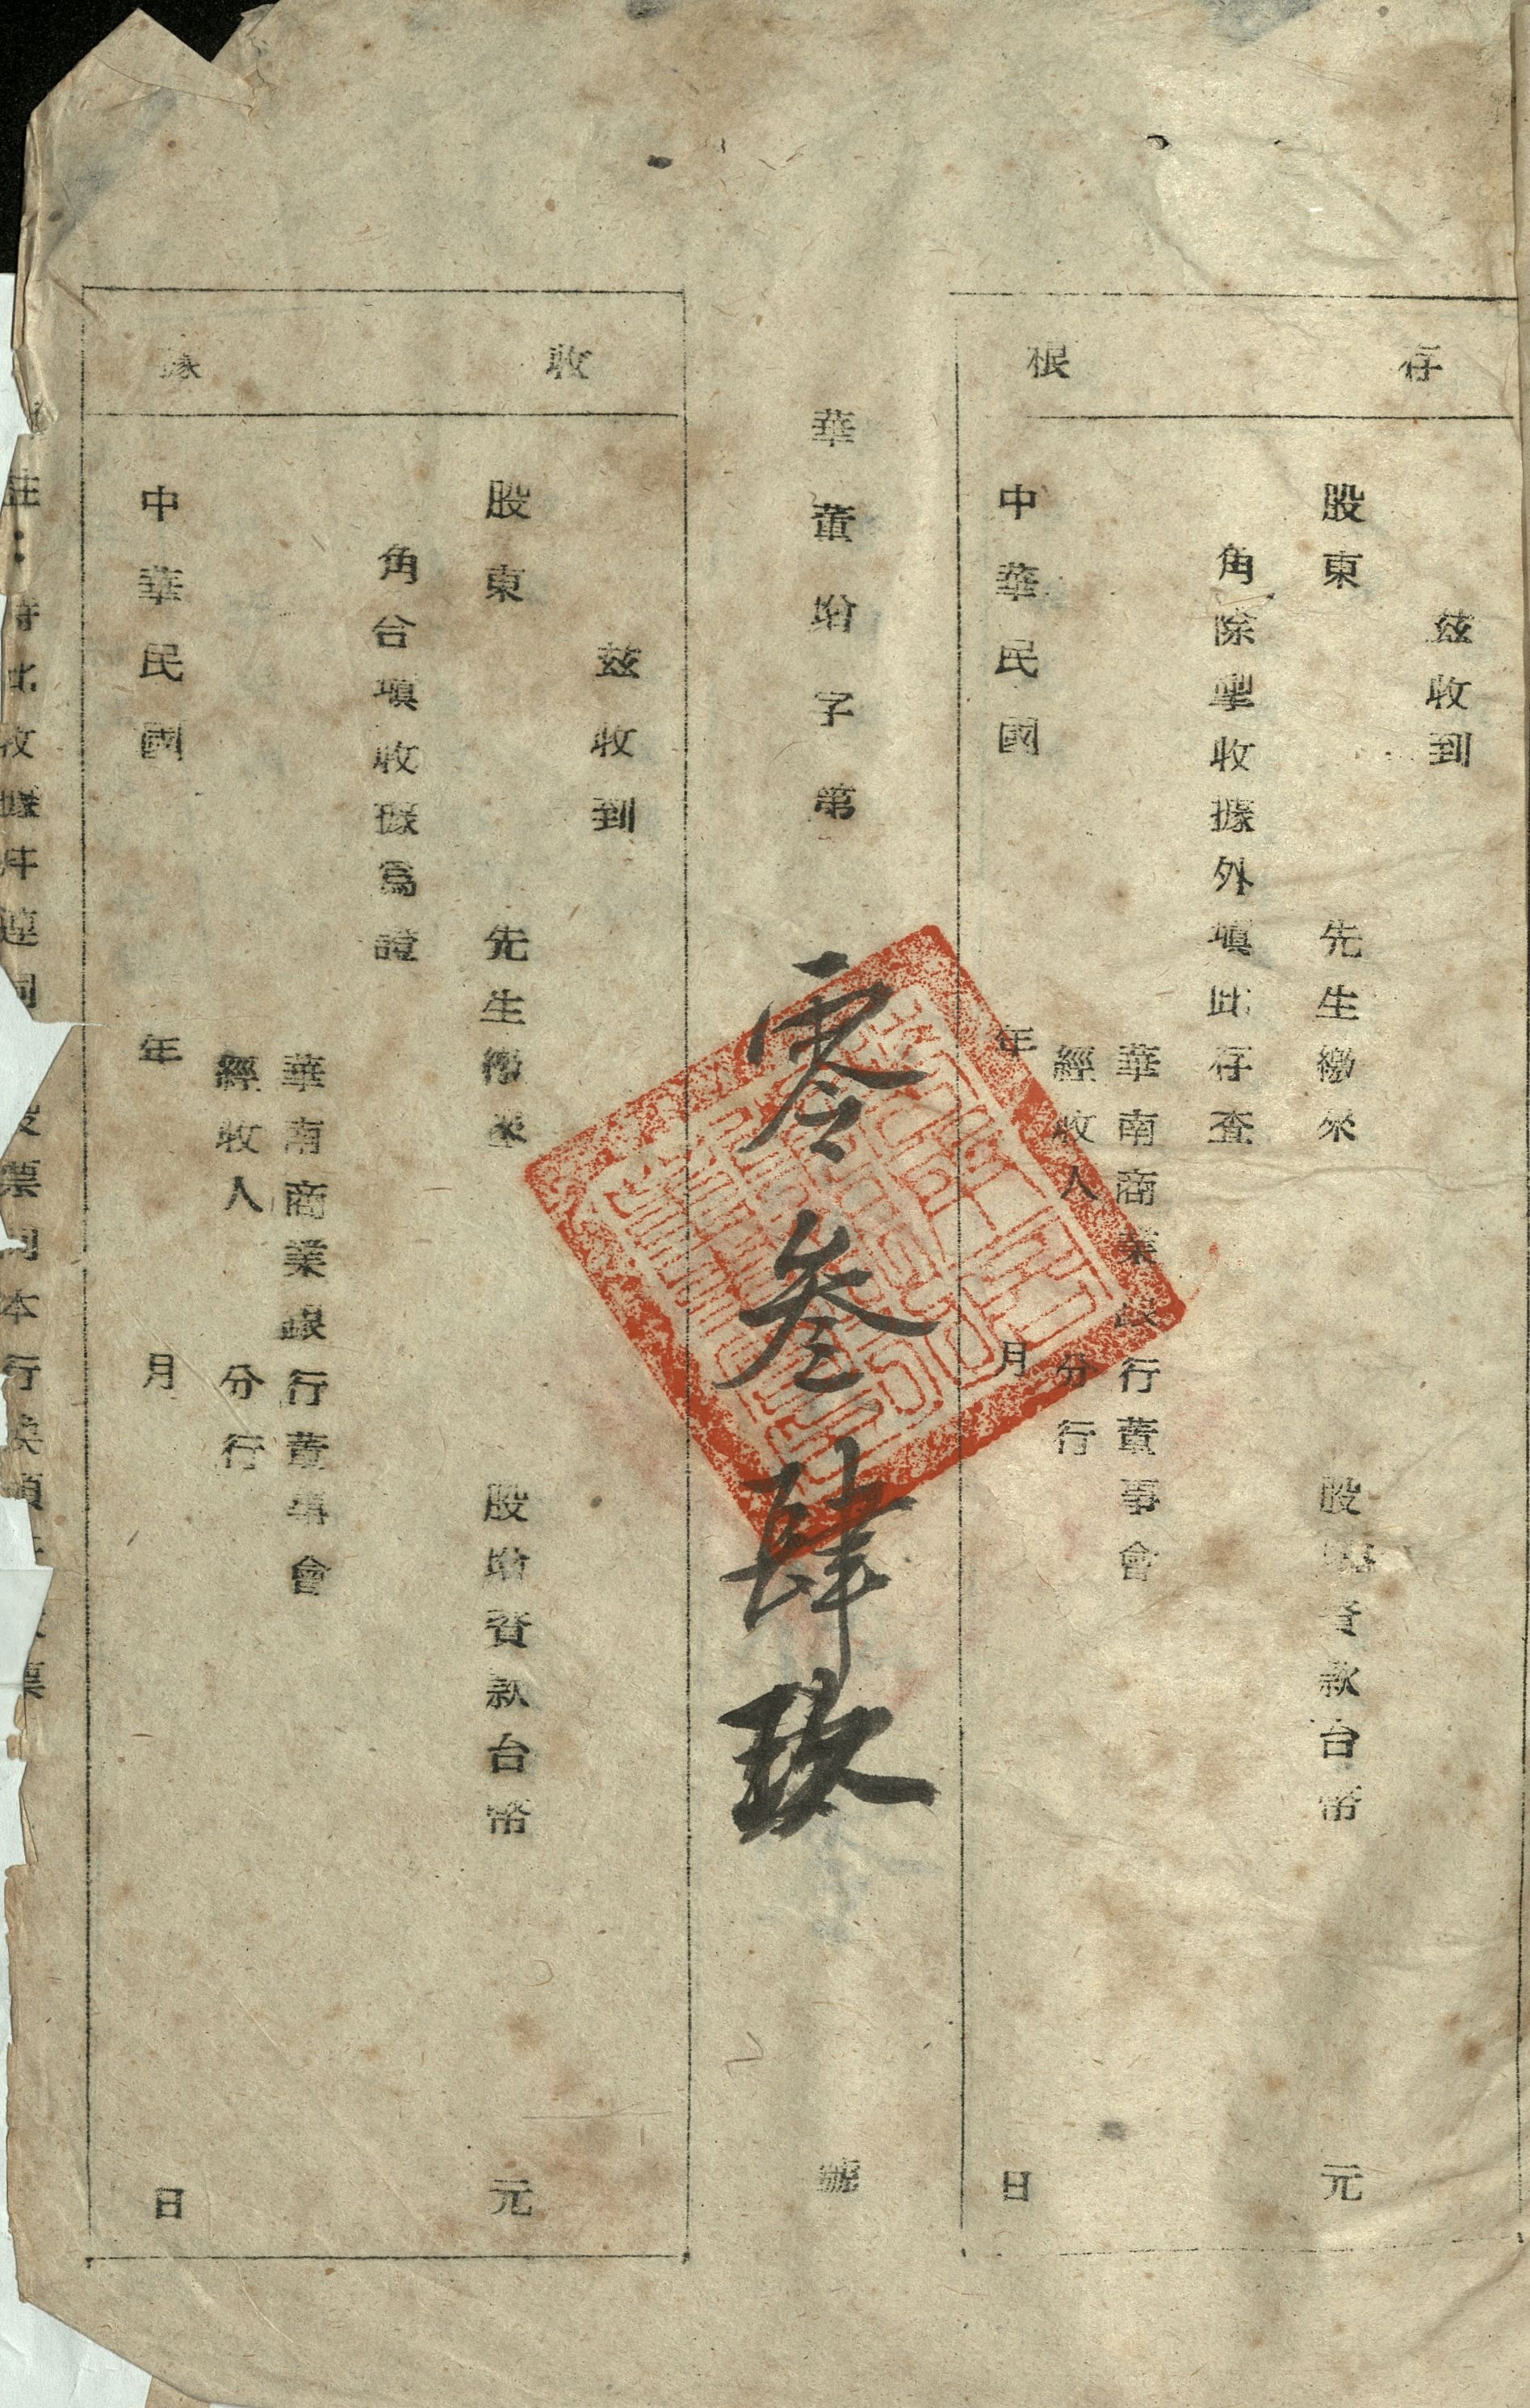 存根
茲收到
股東 先生繳來 股增資款台幣 元
角除掣收據外填此存查
華南商業銀行董事會
經收人 分行
中華民國 年 月 日
華董增字第 零叁肆玖 號
收據
茲收到
股東 先生繳來 股增資款台幣 元
角合填收據為證
華南商業銀行董事會
經收人 分行
中華民國 年 月 日
註：持此收據并連同 股票向本行換領 票